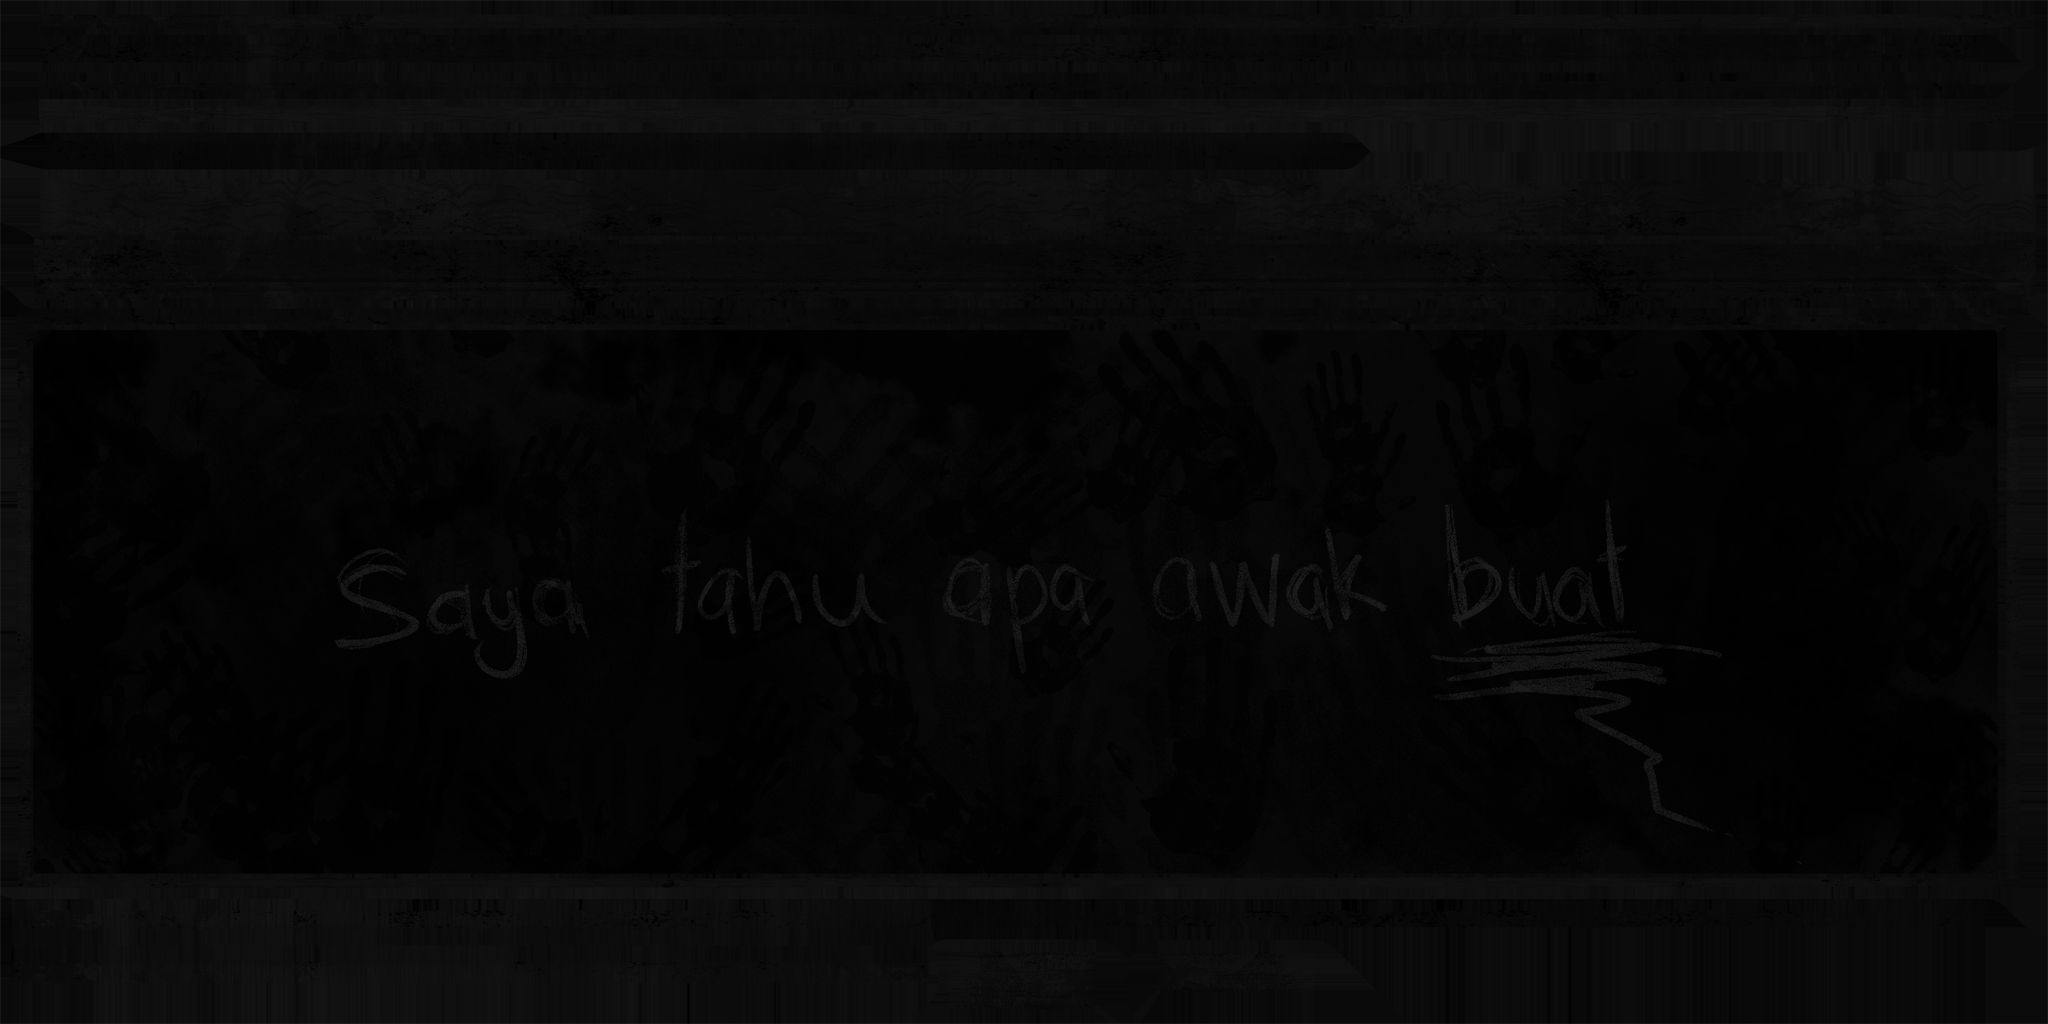 Saya tahu apa awak buat